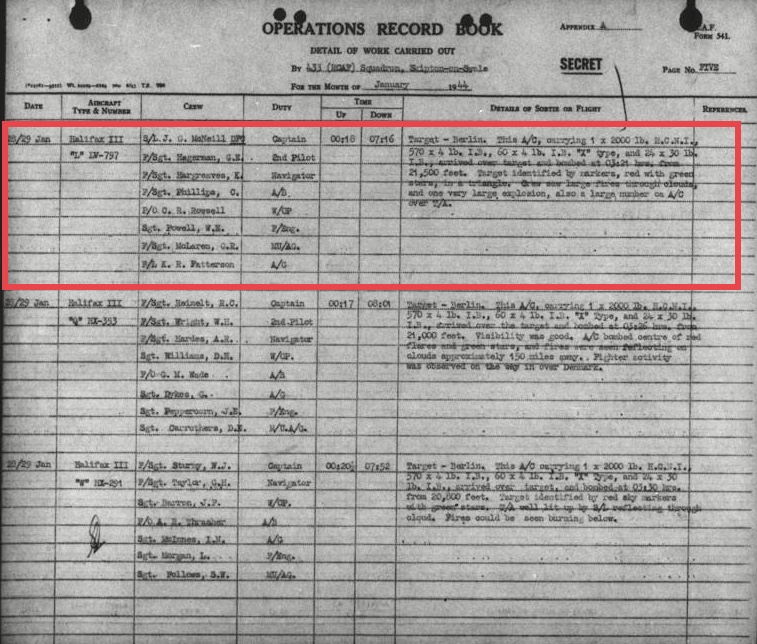 OPERATIONS RECORD BOOK
APPENDIX A
R.A.F.
FORM 541.
DETAIL OF WORK CARRIED OUT
SECRET
BY 433 (RCAF) Squadron, Skipton-on-Swale
PAGE NO. FIVE
FOR THE MONTH OF January 1944
DATE AIRCRAFT TYPE & NUMBER CREW DUTY TIME UP DOWN DETAILS OF SORTIE OR FLIGHT REFERENCES
28/29 Jan Halifax III S/L J. G. McNeill DFC Captain 00:18 07:16 Target - Berlin. This A/C, carrying 1 x 2000 lb. H.C.N.I.,
"L" LV-797 F/Sgt. Hagerman, G.E. 2nd Pilot 570 x 4 lb. I.B., 60 x 4 lb. I.B. "X" type, and 24 x 30 lb.
I.B., arrived over target and bombed at 03:21 hrs. from
F/Sgt. Hargreaves, K. Navigator 21,500 feet. Target identified by markers, red with green
stars, in a triangle. Crew saw large fires through clouds,
F/Sgt. Phillips, C. A/B and one very large explosion, also a large number on A/C
P/O C. R. Rowsell W/OP over T/A.
Sgt. Powell, W.E. F/Eng.
F/Sgt. McLaren, G.R. MU/AG.
F/L K. R. Patterson A/G
28/29 Jan Halifax III F/Sgt. Reinelt, R.C. Captain 00:17 08:01 Target - Berlin. This A/C, carrying 1 x 2000 lb. H.C.N.I.,
"Q" HX-353 F/Sgt. Wright, W.H. 2nd.Pilot 570 x 4 lb. I.B., 60 x 4 lb. I.B. "X" Type, and 24 x 30 lb.
I.B., arrived over the target and bombed at 03:26 hrs. from
F/Sgt. Hardes, A.R. Navigator 21,000 feet. Visibility was good. A/C bombed centre of red
flares and green stars, and fires were seen reflecting on
Sgt. Williams, D.H. W/OP. clouds approximately 150 miles away. Fighter activity
P/O G. M. Wade A/B was observed on the way in over Denmark.
Sgt. Dykes, G. A/G
Sgt. Peppercorn, J.E. F/Eng.
Sgt. Carruthers, D.E. M/U.A/G.
28/29 Jan Halifax III F/Sgt. Sturdy, W.J. Captain 00:20½ 07:52 Target - Berlin. This A/C carrying 1 x 2000 lb. H.C.N.I.,
"W" HX-291 F/Sgt. Taylor, G.H. Navigator 570 x 4 lb. I.B., 60 x 4 lb. I.B. "X" Type, and 24 x 30
lb. I.B., arrived over target, and bombed at 03:30 hrs.
Sgt. Darren, J.F. W/OP. from 20,800 feet. Target identified by red sky markers
with green stars. T/A well lit up by S/L reflecting through
P/O A. R. Thrasher A/B cloud. Fires could be seen burning below.
Sgt. McInnes, I.N. A/G
Sgt. Morgan, L. F/Eng.
Sgt. Fellows, S.W. MU/AG.